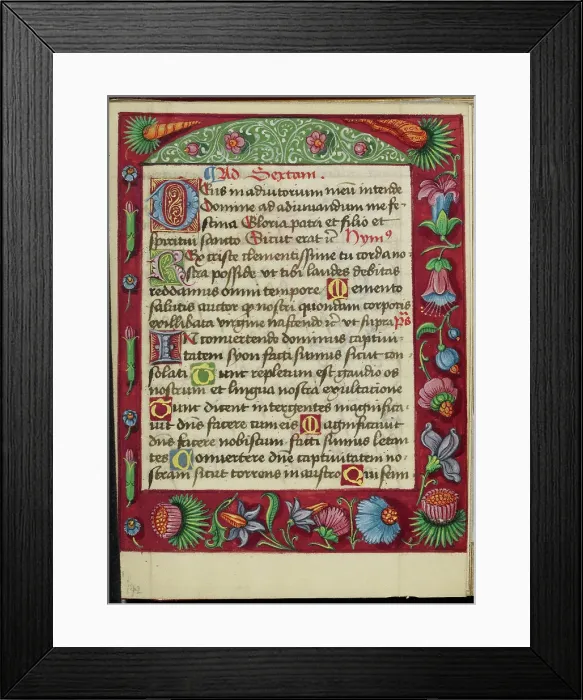 Ad Sextam.
Deus in adiutorium meū intende
Domine ad adiuvandum me fe
stina Gloria patri et filio et
spiritui sancto Sicut erat ic̄ Hymꝰ
Rex criste clementissime tu corda no
stra posside vt tibi laudes debitas
reddamus omni tempore Memento
salutis auctor qꝫ nostri quondam corporis
ex illibata virgine nascendo ic̄ vt supra pš
IN convertendo dominus captivi
tatem syon facti sumus sicut con
solati Tunc repletum est gaudio os
nostrum et lingua nostra exultatione
Tunc dicent inter gentes magnifica
vit dn̄s facere cum eis Magnificavit
dn̄s facere nobiscum facti sumus letan
tes Convertere dn̄e captivitatem no
stram sicut torrens in austro Qui semi